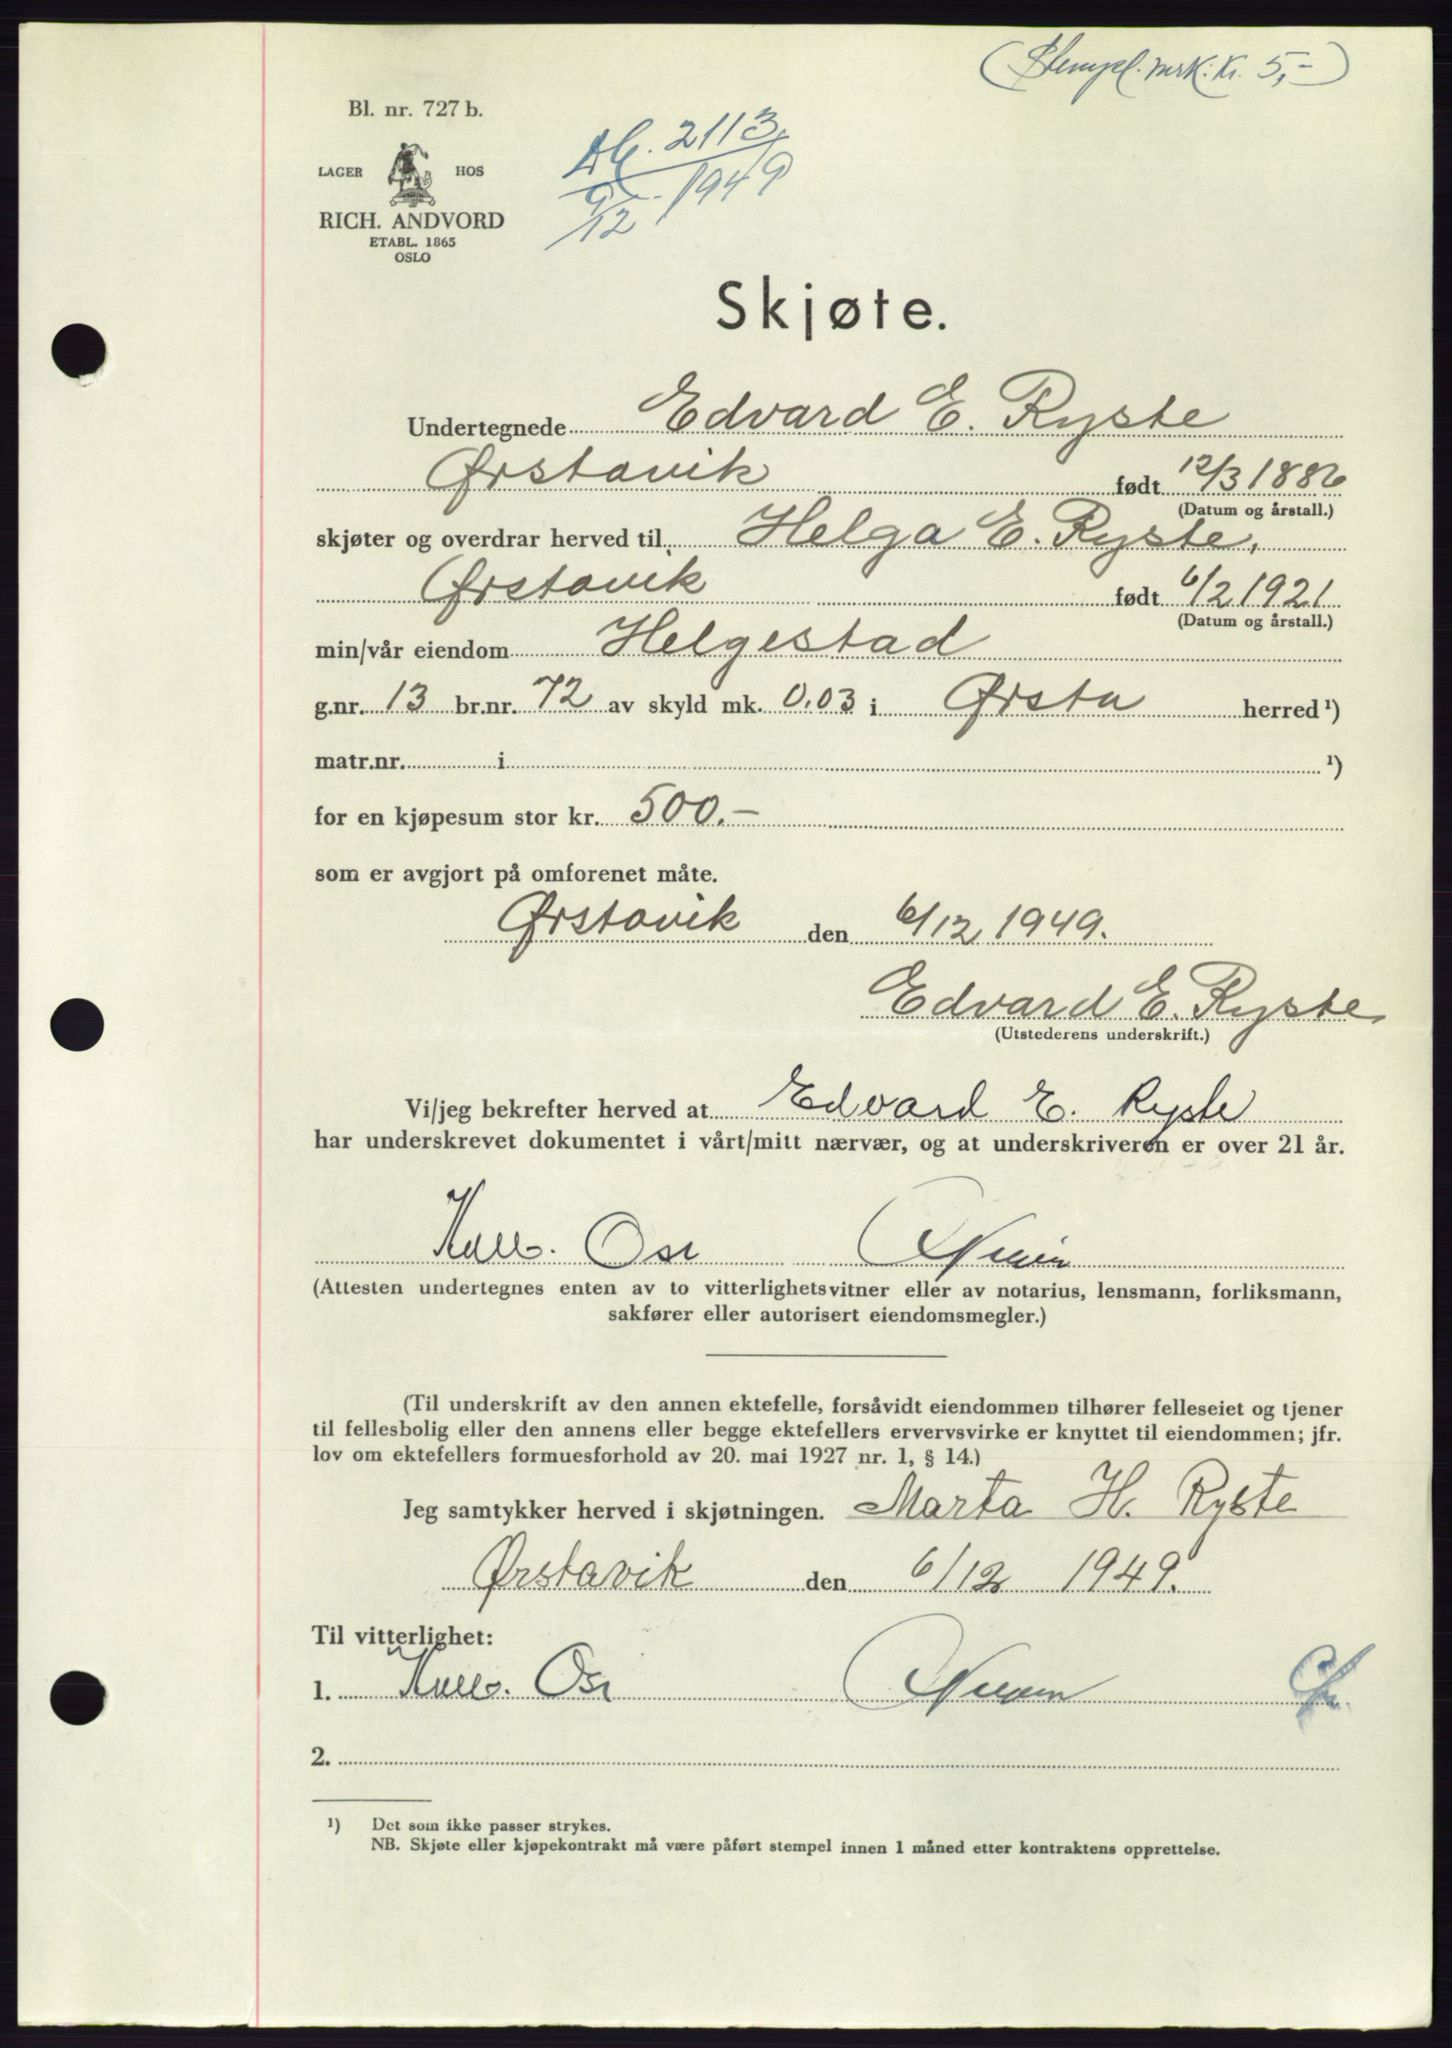 (Stempel.mrk. kr. 5,-)
Bl. nr. 727 b.
LAGER HOS
RICH. ANDVORD
ETABL. 1865
OSLO
2113
9/12 1949
Skjøte.
Undertegnede Edvard E. Ryste
Ørstavik født 12/3 1886
(Datum og årstall.)
skjøter og overdrar herved til Helga E. Ryste,
Ørstavik født 6/2 1921
(Datum og årstall.)
min/vår eiendom Helgestad
g.nr. 13 br.nr. 72 av skyld mk. 0,03 i Ørsta herred ¹)
matr.nr. i ¹)
for en kjøpesum stor kr. 500.-
som er avgjort på omforenet måte.
Ørstavik den 6/12 1949.
Edvard E. Ryste
(Utstederens underskrift.)
Vi/jeg bekrefter herved at Edvard E. Ryste
har underskrevet dokumentet i vårt/mitt nærvær, og at underskriveren er over 21 år.
(Attesten undertegnes enten av to vitterlighetsvitner eller av notarius, lensmann, forliksmann,
sakfører eller autorisert eiendomsmegler.)
(Til underskrift av den annen ektefelle, forsåvidt eiendommen tilhører felleseiet og tjener
til fellesbolig eller den annens eller begge ektefellers ervervsvirke er knyttet til eiendommen; jfr.
lov om ektefellers formuesforhold av 20. mai 1927 nr. 1, § 14.)
Jeg samtykker herved i skjøtningen. Marta H. Ryste
Ørstavik den 6/12 1949.
Til vitterlighet:
1.
2.
¹) Det som ikke passer strykes.
NB. Skjøte eller kjøpekontrakt må være påført stempel innen 1 måned etter kontraktens opprettelse.